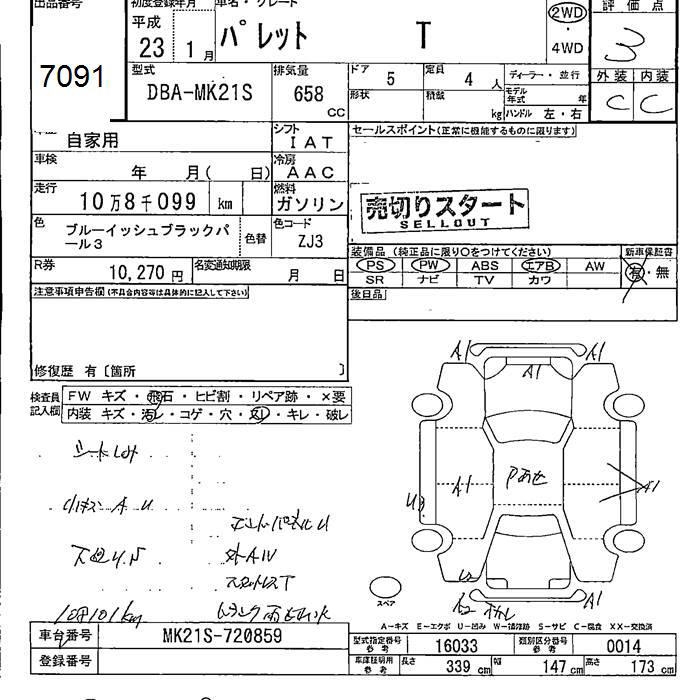 出品番号
7091
初度登録年月
平成
23 1月
車名・グレード
パレット T
2WD
・
4WD
評価点
3
外装 内装
C C
型式
DBA-MK21S
排気量
658
CC
ドア
5
定員
4 人
ディーラー・並行
形状
積載
kg
モデル年式 年
ハンドル 左・右
自家用
シフト
IAT
車検
年 月( 日)
冷房
AAC
走行
10万8千099 km
燃料
ガソリン
色
ブルーイッシュブラックパ
ール3
色替
色コード
ZJ3
R券
10,270円
名変通知期限
月 日
セールスポイント(正常に機能するものに限ります)
売切りスタート
SELLOUT
装備品 (純正品に限り○をつけてください)
新車保証書
PS PW ABS エアB AW
SR ナビ TV カワ
有・無
後日品
注意事項申告欄(不具合内容等は具体的に記入して下さい)
修復歴 有〔箇所 〕
検査員
記入欄
FW キズ・飛石・ヒビ割・リペア跡・×要
内装 キズ・汚レ・コゲ・穴・スレ・キレ・破レ
小キズ A U
A1
A1
A1
A1
A1
U3
スペア
A−キズ E−エクボ U−凹み W−補修跡 S−サビ C−腐食 XX−交換済
車台番号
MK21S-720859
登録番号
型式指定番号
参考
16033
類別区分番号
参考
0014
車庫証明用
参考
長さ 339 cm
幅 147 cm
高さ 173 cm